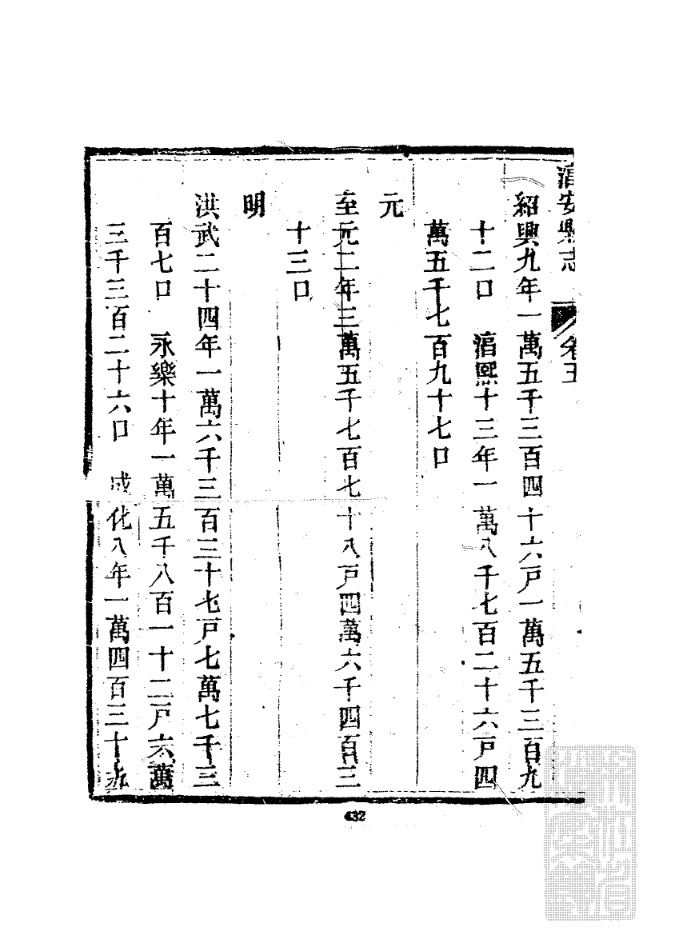 淳安縣志 卷五
紹興九年一萬五千三百四十六戸一萬五千三百九
十二口 淳熙十三年一萬八千七百二十六戸四
萬五千七百九十七口
元
至元二年三萬五千七百七十八戸四萬六千四百三
十三口
明
洪武二十四年一萬六千三百三十七戸七萬七千三
百七口 永樂十年一萬五千八百一十二戸六萬
三千三百二十六口 成化八年一萬四百三十九
432